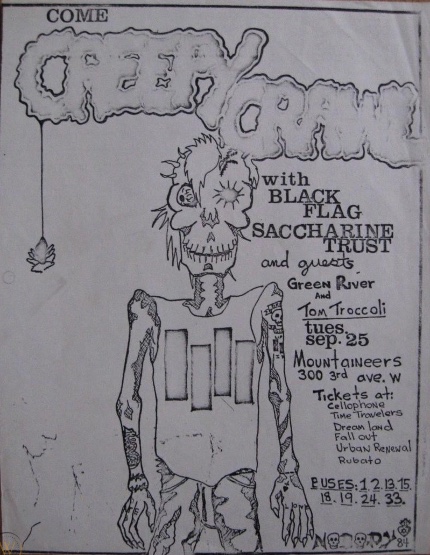 COME
CREEPY
CRAWL
with
BLACK
FLAG
SACCHARINE
TRUST
and guests,
Green River
And
Tom Troccoli
tues.
sep. 25
Mountaineers
300 3rd ave. W
Tickets at:
Cellophone
Time Travelers
Dream land
Fall out
Urban Renewal
Rubato
BUSES: 1. 2. 13. 15.
18. 19. 24. 33.
84